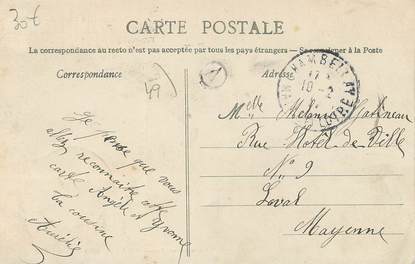 30€
CARTE POSTALE
La correspondance au recto n'est pas acceptée par tous les pays étrangers - Se renseigner à la Poste
Correspondance
Adresse
49
A
CHAMBELLAY
10-2
Je pense que vous
allez reconnaitre cette
carte Angèle et Yvonne
La cousine
Aurélie
Melle Gatineau
Rue Hotel de Ville
No 9
Laval
Mayenne